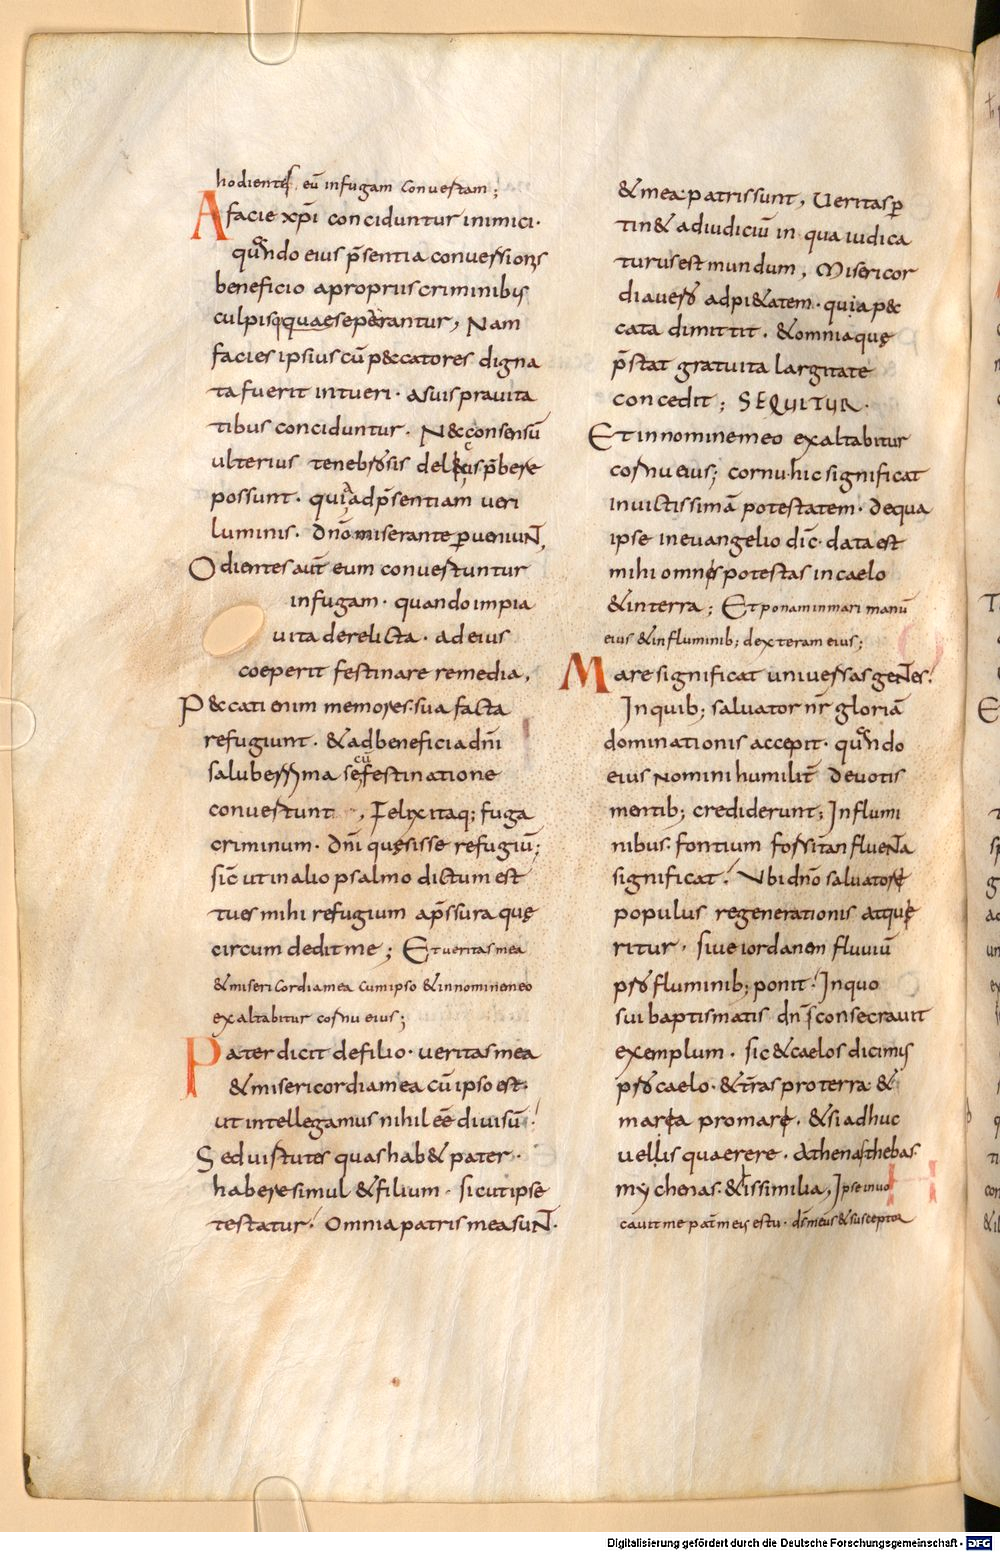 hodientes, eū infugam convertam;
A facie xp̄i conciduntur inimici·
quando eius p̄sentia conversionis
beneficio apropriis criminibus
culpisq quae seperantur, Nam
facies ipsius cū p&ccatores digna
ta fuerit intueri· asuis pravita
tibus conciduntur· N&c consensū
ulterius tenebrosis p̄bere
possunt· quia adp̄sentiam veri
luminis· dn̄o miserante perveniuNT,
Odientes aut̄ eum convertuntur
infugam· quando impia
vita derelicta· ad eius
coeperit festinare remedia,
P&ccati enim memores· sua facta
refugiunt· & ad beneficia dn̄i
saluberrima se cū festinatione
convertunt, Felix itaq; fuga
criminum· dn̄i quęsisse refugiū;
sic̄ ut in alio psalmo dictum est
tu es mihi refugium ap̄ssura quę
circum dedit me; Et veritas mea
& misericordia mea cum ipso & in nomine meo
exaltabitur cornu eius;
Pater dicit de filio· veritas mea
& misericordia mea cū ipso est·
ut intellegamus nihil eē divisū·
Sed virtutes quas hab& pater·
habere simul & filium· sicut ipse
testatur· Omnia patris mea suNT·
& mea patris sunt, Veritas per
tin& ad iudiciū in qua iudica
turus est mundum, Misericor
dia vero ad pi&atem· quia p&c
cata dimittit· & omnia quę
p̄stat gratuita largitate
concedit; SEQUITUR·
Et in nomine meo exaltabitur
cornu eius; cornu hic significat
invictissimā potestatem· de qua
ipse in evangelio dic̄· data est
mihi omnis potestas in caelo
& in terra; Et ponam in mari manū
eius & in fluminib; dexteram eius;
Mare significat universas geNTes·
In quib; salvator nr̄ gloriā
dominationis accepit· quando
eius nomini humilit̄ devotis
mentib; crediderunt; In flumi
nibus· fontium forsitan flueNTa
significat· Ubi dn̄o salvatore
populus regenerationis atque
ritur· sive iordanen fluviū
pro fluminib; ponit· In quo
sui baptismatis dn̄s consecravit
exemplum· sic & caelos dicimus
pro caelo· & tr̄as pro terra &
maria pro mare· & si adhuc
vellis quaerere· Athenas thebas
mychenas· & his similia, Ipse invo
cavit me pat̄ meus es tu· dš meus & susceptor
Digitalisierung gefördert durch die Deutsche Forschungsgemeinschaft - DFG